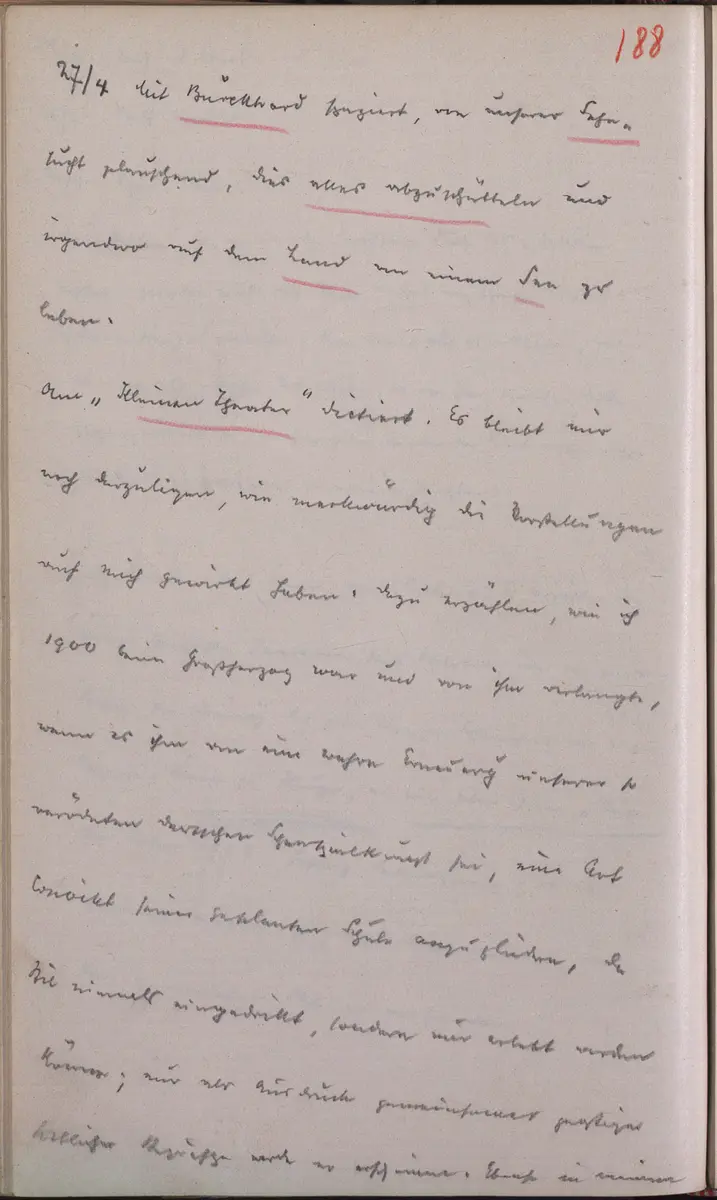 188
27/4 Mit Burckhard spaziert, von unserer Sehn-
sucht plauschend, dies alles abzuschütteln und
irgendwo auf dem Land an einem See zu
leben.
Am „Kleinen Theater“ dictiert. Es bleibt mir
noch darzulegen, wie merkwürdig die Vorstellungen
auf mich gewirkt haben. Dazu erzählen, wie ich
1900 beim Großherzog war und von ihm verlangte,
wenn es ihm um eine wahre Erneuerg unserer so
verödeten deutschen Schauspielkunst sei, eine Art
Convikt seiner geplanten Schule anzugliedern, da
Stil niemals eingedrillt, sondern nur erlebt werden
könne; nur als Ausdruck gemeinsamer geistiger
werde er erscheinen. Ebenso in meiner